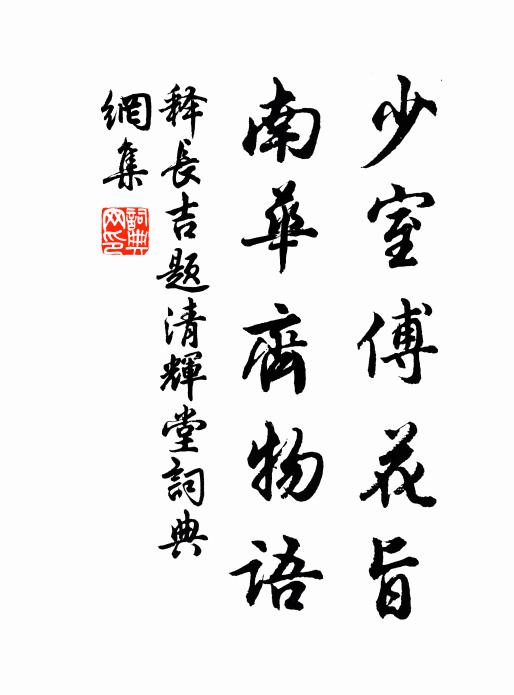 少室傅花旨
南華齊物語
释長吉題清輝堂詞典
網集
詞典
网印